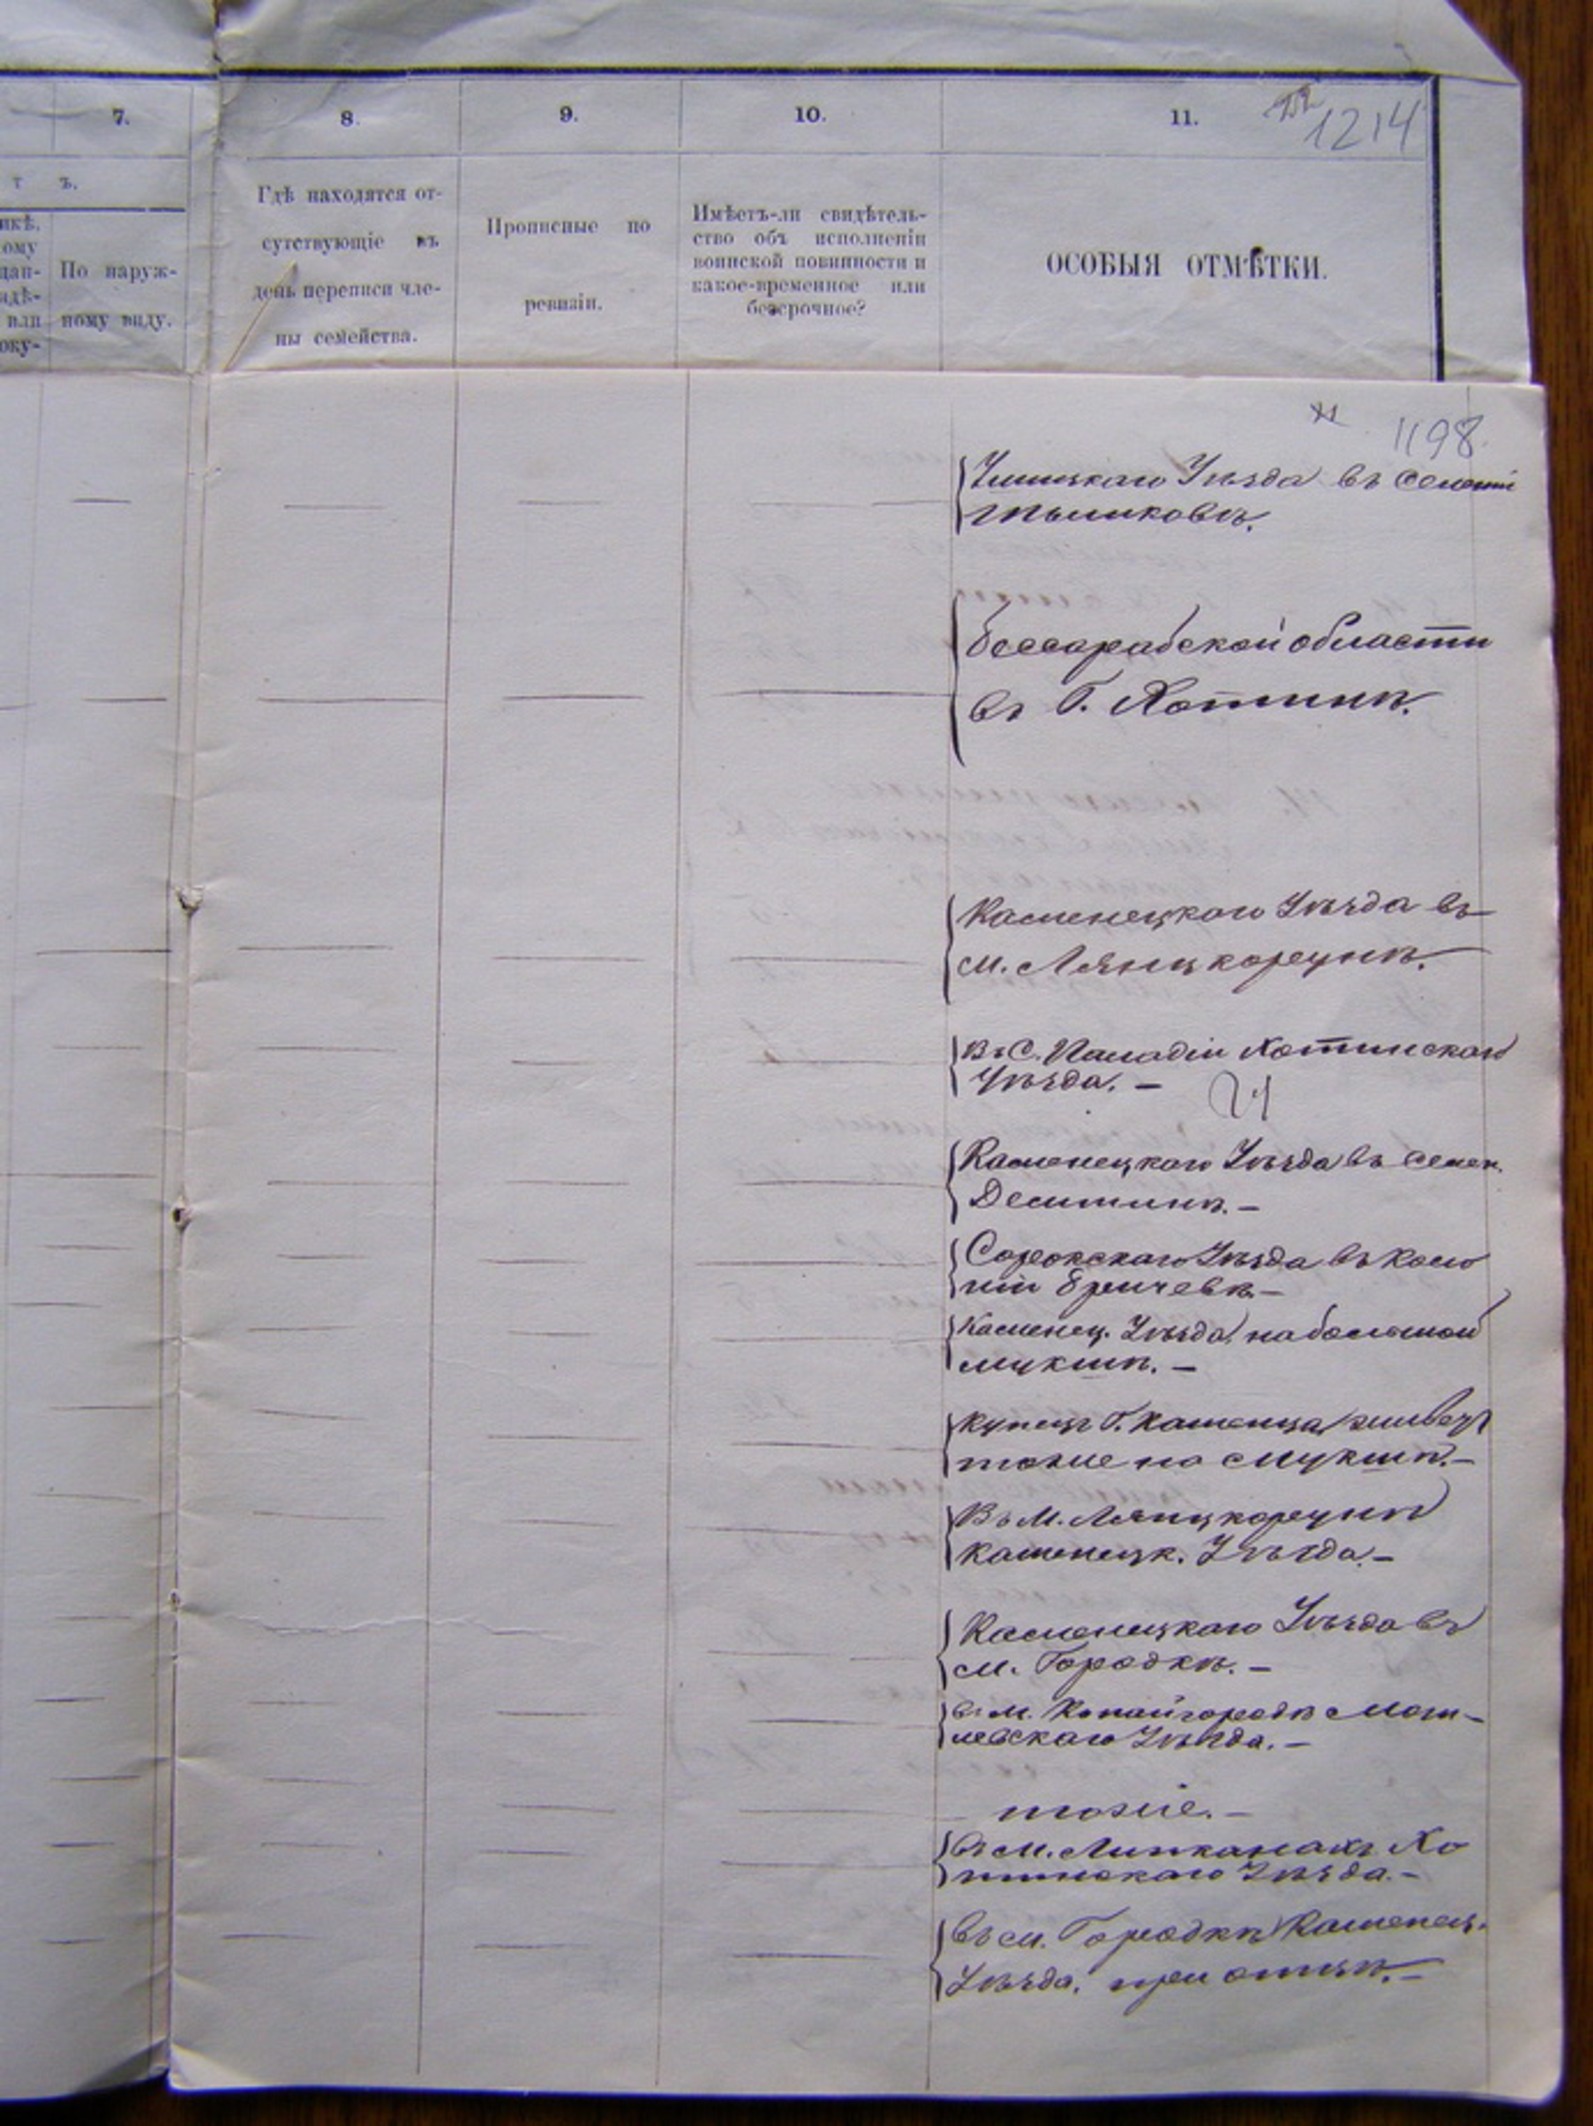 7.
8.
9.
10.
11.
1214
т ъ.
По наруж-
ному виду.
Гдѣ находятся от-
сутствующіе въ
день переписи чле-
ны семейства.
Прописные по
ревизіи.
Имѣетъ-ли свидѣтель-
ство объ исполненіи
воинской повинности и
какое-временное или
безсрочное?
ОСОБЫЯ ОТМѢТКИ.
1198.
Ушицкаго Уѣзда въ селеніи
Бессарабской области
въ Г. Хотинѣ.
Каменецкаго Уѣзда въ
м. Лянцкорунѣ.
Въ С. Паладіи Хотинскаго
Уѣзда. —
Каменецкаго Уѣзда въ селен.
Сорокскаго Уѣзда въ коло
ніи Бричевѣ —
Каменец. Уѣзда, на большой
мукшѣ. —
Купецъ Г. Каменца, живетъ
тоже на Мукшѣ. —
Въ М. Лянцкорунѣ
Каменецк. Уѣзда. —
Каменецкаго Уѣзда въ
м. Городкѣ. —
въ м. Копайгородѣ Моги-
левскаго Уѣзда. —
тоже. —
въ м. Липканахъ Хо
тинскаго Уѣзда. —
въ м. Городкѣ Каменец.
Уѣзда, при отцѣ. —